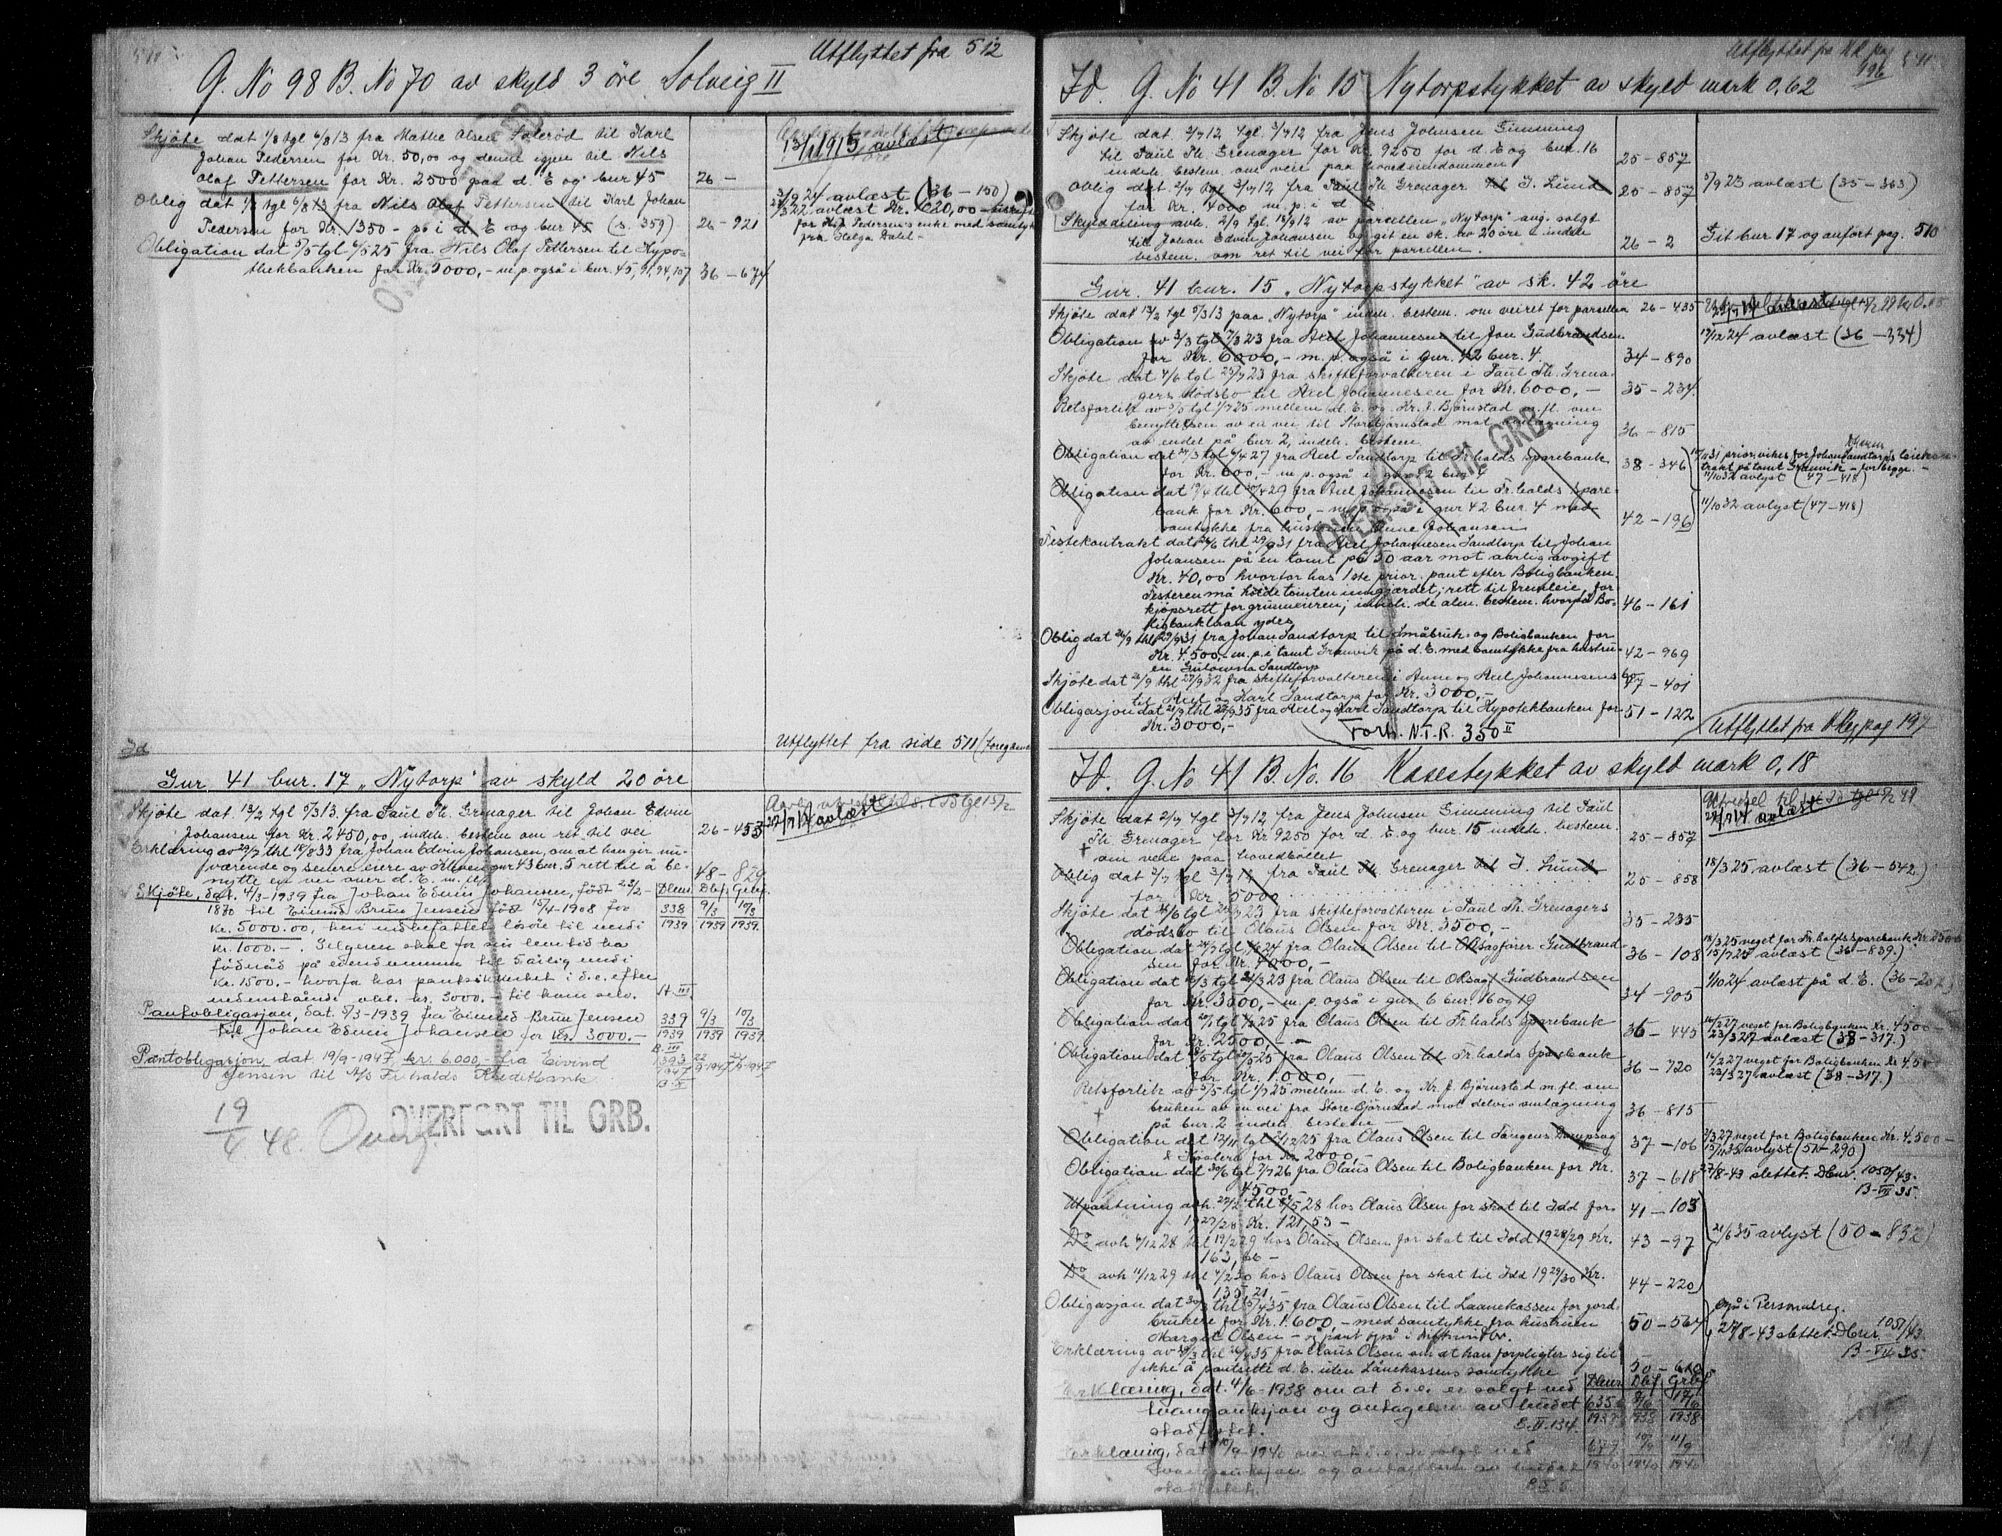 Utflyttet fra 512
G. No 98 B. No 70 av skyld 3 øre Solveig II
Skjøte dat 1/8 tgl 6/8 13 fra Mathe Olsen til Karl
Johan Pedersen for Kr. 50,00 og denne igjen til Nils
Olaf Pettersen for Kr. 2500 paa d. E og bnr 45
26 -
13/1 1915 avlæst
Oblig dat 1/8 tgl 6/8 13 fra Nils Olaf Pettersen til Karl Johan
Pedersen for Kr. 1350 - på i d. E og bnr 45 (s. 359)
26 - 921
3/9 24 avlæst (36 - 150)
for Karl Pedersens enke med samtykke
fra Helga Dahl -
Obligation dat 5/5 tgl 6/5 25 fra Nils Olaf Pettersen til Hypo-
thekbanken for Kr. 5000,- m.p. også i bnr. 45, 91, 94, 107
36 - 674
Utflyttet fra side 511 (foregående
Id
Gnr. 41 bnr. 17 „Nytorp" av skyld 20 øre
Skjøte dat. 13/2 tgl 5/3 13 fra Paul Th. Grenager til Johan Edvin
Johansen for Kr. 2450,00, indeh. bestem om ret til vei
26 - 453
22/7 14 avlæst
Erklæring av 29/7 thl 18/8 33 fra Johan Edvin Johansen, om at han gir nu-
værende og senere eiere av gnr 43 bnr. 5 rett til å be-
nytte en vei over d. E. m. fl.
48 - 829
Skjøte, dat. 4/3-1939 fra Johan Edvin Johansen, født 25/2-
1870 til Eivind Bruu Jensen født 15/4-1908 for
Kr. 5000.00, heri indbefattet løsøre til verdi
Kr. 1000.-. Selgeren skal for sin levetid ha
føderåd på eiendommen til 5 årlig verdi
Kr. 1500.- hvorfor har panksikkerhet i d.e. efter
nedenstående obl. kr. 3000.- til ham selv.
Dbnr. Dbf. Grbf.
338 9/3 10/3
1939 1939 1939.
A III
Pantobligasjon, dat. 9/3-1939 fra Eivind Bruu Jensen
til Johan Edvin Johansen for kr. 3000.-
339 9/3 10/3
1939 1939 1939.
B. III
Pantobligasjon, dat 19/9-1947 kr. 6.000,- fra Eivind
Jensen til A/S Fr.halds Kreditbank
1393
1947
B-V
OVERFØRT TIL GRB.
19/4 48. Overf.
Utflyttet fra
196
Id. G. No 41 B. No 15 Nytorpstykket av skyld mark 0,62
Skjøte dat. 2/7 12 tgl. 3/7 12 fra Jens Johnsen Gimming
til Paul Th. Grenager for Kr. 9250 for d. E og bnr. 16
indeh. bestem. om vei paa hovedeiendommen
25 - 857
Oblig dat 2/7 tgl 3/7 12 fra Paul Th Grenager til J. Lund
for Kr. 4000 m. p. i d. E
25 - 857
5/9 23 avlæst (35 - 363)
Skylddeling avh. 2/9 tgl. 18/9 12 av parcellen „Nytorp" ang. solgt
til Johan Edvin Johansen og git en sk. av 20 øre - indeh
bestem. om ret til vei for parcellen.
26 - 2
Git bnr 17 og anført pag. 510
Gnr. 41 bnr. 15 „Nytorpstykket" av sk. 42 øre
Skjøte dat 13/2 tgl 5/3 13 paa „Nytorp" indeh. bestem. om veiret for parcellen
26 - 435
Obligation av 2/3 tgl 7/3 23 fra Axel Johannesen til Jon Gudbrandsen
for Kr. 6000,- m. p. også i gnr. 42 bnr. 4.
34 - 890
17/12 24 avlæst (36 - 334)
Skjøte dat 4/6 tgl 25/7 23 fra skifteforvalteren i Paul Th. Grena-
gers dødsbo til Axel Johannesen for Kr. 6000,-
35 - 234
Retsforlik av 5/5 tgl 1/7 25 mellem d. E. og Kr. J. Bjørnstad m.fl. om
benyttelsen av en vei til Storebjørnstad mot omlægning
av endel på bnr 2, indeh. bestem.
36 - 815
Obligation dat 24/3 tgl 6/4 27 fra Axel Sandtorp til Fr.halds Sparebank
for Kr. 600,- m. p. også i gnr 42 bnr 4
38 - 346
11/10 32 avlyst (47 - 418)
Obligation dat 19/4 thl 20/4 29 fra Axel Johannesen til Fr.halds Spare-
bank for Kr. 600,- m. p. også i gnr 42 bnr. 4 med
samtykke fra hustruen Anne Johansen
42 - 196
11/10 32 avlyst (47 - 418)
Festekontrakt dat 26/6 thl 29/9 31 fra Axel Johannesen Sandtorp til Johan
Johansen på en tomt på 50 aar mot aarlig avgift
Kr. 40,00 hvorfor has 1ste prior. pant efter Boligbanken.
Festeren må holde tomten inngjærdet; rett til fremleie, for
kjøpsrett for grunneieren; indeh. de alm. bestem. hvorpå Bo-
ligbanklaan ydes
46 - 161
Oblig dat 26/9 thl 29/9 31 fra Johan Sandtorp til Småbruk- og Boligbanken for
Kr. 4500,- m. p. i tomt Granvik på d. E. med samtykke fra hustru-
en Gulowna Sandtorp
42 - 969
Skjøte dat 21/9 thl 27/9 32 fra skifteforvalteren i Anne og Axel Johannesens
bo til Axel og Karl Sandtorp for Kr. 3000,-
47 - 401
Obligasjon dat 21/9 thl 25/9 35 fra Axel og Karl Sandtorp til Hypotekbanken for
Kr. 3000,-
51 - 122
Forts. N.T.R. 350 II
OVERFØRT TIL GRB.
Utflyttet fra Reg pag 197
Id. G. No 41 B. No. 16 Kasestykket av skyld mark 0,18
Skjøte dat 2/7 tgl 3/7 12 fra Jens Johnsen Gimming til Paul
Th. Grenager for Kr 9250 for d. E og bnr. 15 indeh. bestem.
om veie paa hovedbøllet
25 - 857
24/7 14 avlæst
Oblig dat 2/7 tgl 3/7 12 fra Paul Th Grenager til J. Lund
for Kr. 5000
25 - 858
18/3 25 avlæst (36 - 542)
Skjøte dat 26/6 tgl 25/7 23 fra skifteforvalteren i Paul Th. Grenagers
dødsbo til Olaus Olsen for Kr. 3500,-
35 - 235
Obligation dat 24/7 tgl 1/8 24 fra Olaus Olsen til Oksagfører Gudbrand
sen for Kr. 4000,-
36 - 108
18/3 25 veget for Fr.halds Sparebank Kr. 2500
15/7 25 avlæst (36 - 839.)
Obligation dat 7/3 tgl 24/3 23 fra Olaus Olsen til Oksagf Gudbrandsen
for Kr. 3500,- m. p. også i gnr. 6 bnr. 16 og 19
34 - 905
1/10 24 avlæst på d. E. (36 - 202)
Obligation dat 20/1 tgl 4/2 25 fra Olaus Olsen til Fr.halds Sparebank
for Kr. 2500,-
36 - 445
16/2 27 veget for Boligbanken Kr. 4500
23/3 27 avlæst (38 - 317.)
Obligation dat 18/5 tgl 20/5 25 fra Olaus Olsen til Fr.halds Sparebank
for Kr. 1000,-
36 - 720
16/2 27 veget for Boligbanken Kr 4500
23/3 27 avlæst (38 - 317.)
Retsforlik av 5/5 tgl 1/7 25 mellem d. E. og Kr. J. Bjørnstad m. fl. om
bruken av en vei fra Store-Bjørnstad mot delvis omlægning
på bnr. 2 indeh. bestem -
36 - 815
Obligation dat 12/11 tgl 2/12 25 fra Olaus Olsen til Tangens Dampsag
& Høvleri for Kr 2000,-
37 - 106
2/3 27 veget for Boligbanken Kr. 4.500 -
15/11 35 avlyst (51 - 290)
Obligation dat 30/6 tgl 7/7 26 fra Olaus Olsen til Boligbanken for Kr.
4500,-
37 - 618
27/8-43 slettet. Dbnr. 1050/43
B-VII 35.
Utpantning avh. 22/2 thl 8/5 28 hos Olaus Olsen for skat til Idd for
1927/28 Kr. 121,53 -
41 - 103
Do avh 4/12 28 thl 19/2 29 hos Olaus Olsen for skat til Idd 1928/29 Kr.
163,66 -
43 - 97
21/6 35 avlyst (50 - 832)
Do avh 11/12 29 thl 4/2 30 hos Olaus Olsen for skat til Idd 1929/30 Kr.
135,21,-
44 - 220
Obligasjon dat 30/3 thl 15/4 35 fra Olaus Olsen til Laanekassen for jord-
brukere for Kr. 1.600,- med samtykke fra hustruen
Margit Olsen - og pant også i driftsinvbr.
50 - 564
også i Personalreg.
27/8-43 slettet. Dbnr. 1051/43
B-VII 35.
Erklæring av 30/3 thl 26/4 35 fra Olaus Olsen om at han forpligter sig til
ikke å pantsette d. E. uten Lånekassens samtykke
50 - 610
Erklæring, dat. 4/6-1938 om at d.e. er solgt ved
tvangsauksjon og antagelsen av budet
stadfestet.
B. II. 134.
Dbnr Dbf Grbf
635 9/6 10/6
1938 1938 1938
Erklæring, dat 10/9-1940 om at d.e. er solgt ved
tvangsauksjon og antagelsen av budet
stadfestet.
687 10/9 11/9
1940 1940 1940